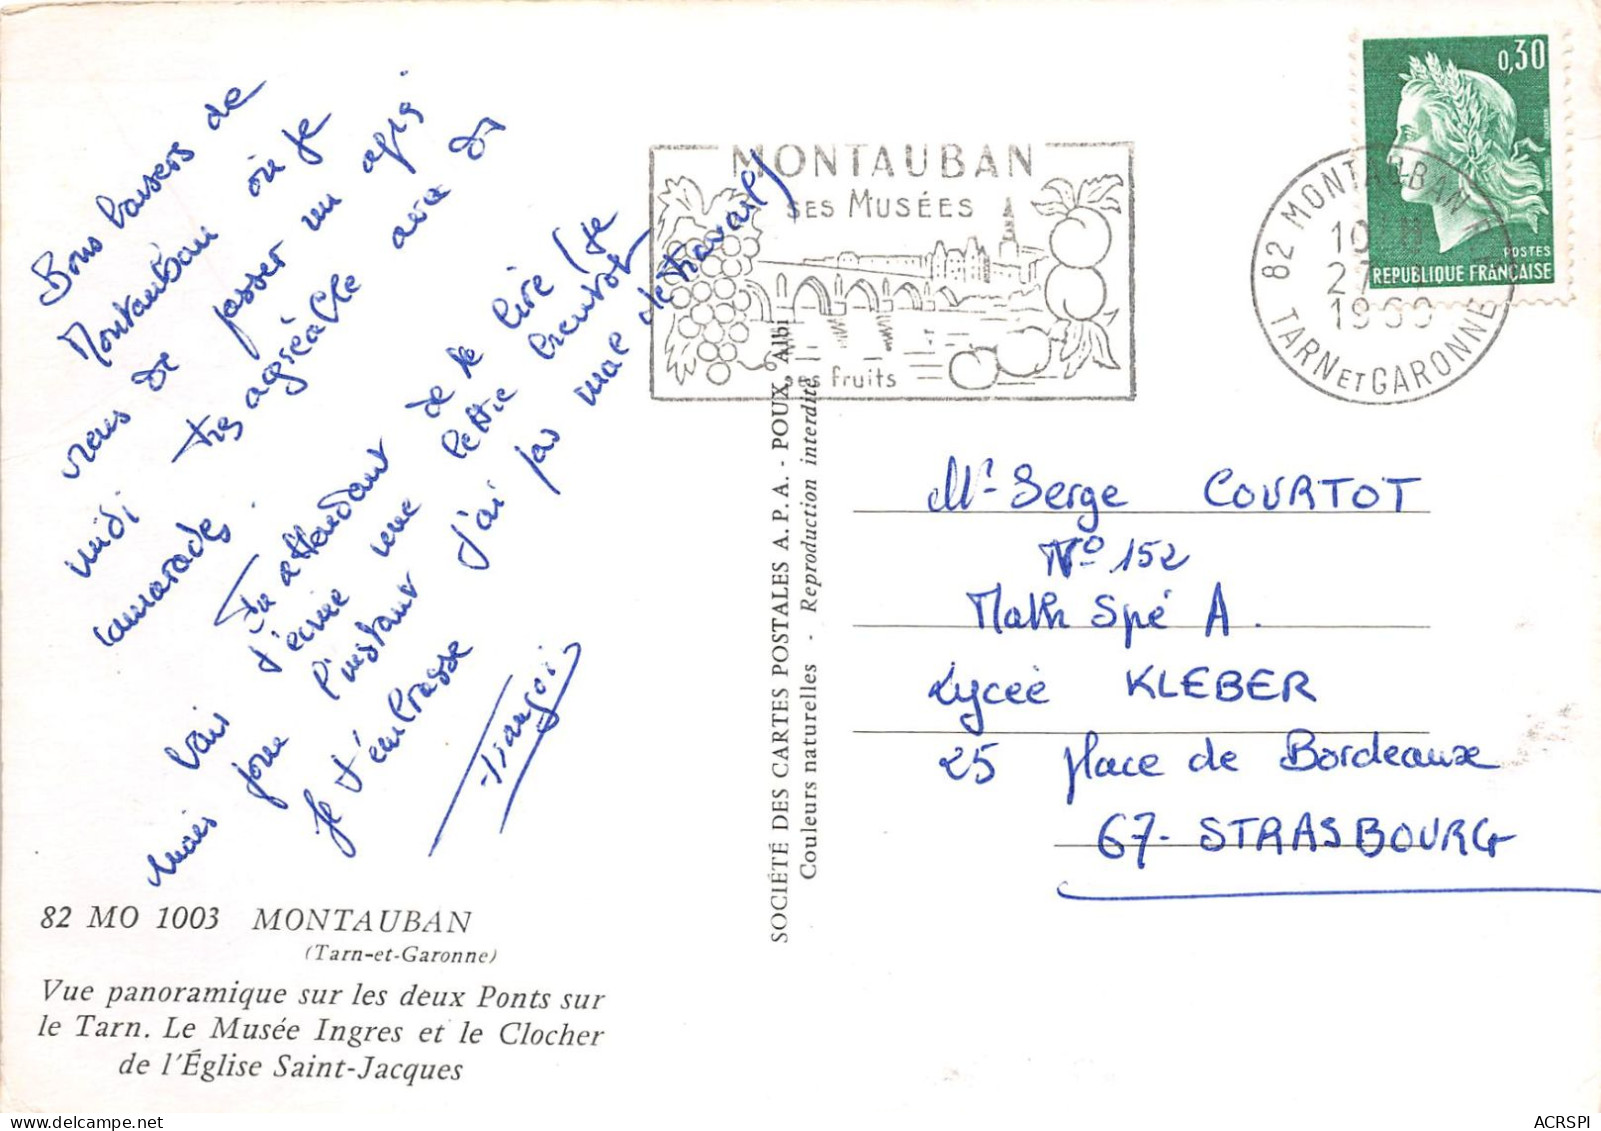 Bons baisers de
Montauban où je
viens de passer un après
midi très agréable avec des
camarades.
En attendant de te lire (je
t'écrirai une lettre bientôt
mais pour l'instant j'ai pas mal de travail)
Je t'embrasse
François
82 MO 1003 MONTAUBAN
(Tarn-et-Garonne)
Vue panoramique sur les deux Ponts sur
le Tarn. Le Musée Ingres et le Clocher
de l'Église Saint-Jacques
SOCIÉTÉ DES CARTES POSTALES A. P. A. - POUX, Albi
Couleurs naturelles - Reproduction interdite
MONTAUBAN
SES MUSÉES
ses fruits
82 MONTAUBAN
27
TARN ET GARONNE
0,30
POSTES
REPUBLIQUE FRANÇAISE
Mr Serge COURTOT
N° 152
Math Spé A.
Lycée KLEBER
25 place de Bordeaux
67- STRASBOURG
ACRSPI